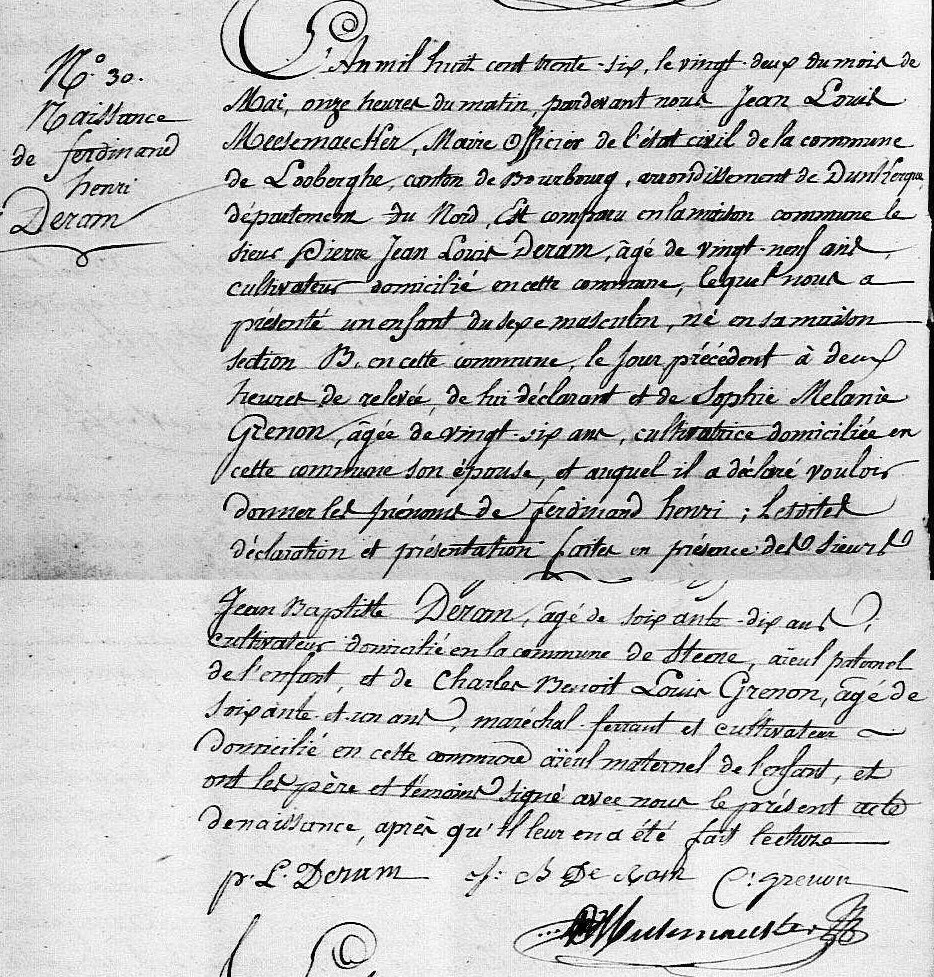 N.o 30.
Naissance
de ferdinand
henri
Deram
L'An mil huit cent trente-six, le vingt-deux du mois de
Mai, onze heures du matin, pardevant nous Jean Louis
Meesemaecker, Maire Officier de l'état civil de la commune
de Looberghe, canton de Bourbourg, arrondissement de Dunkerque,
département du Nord, Est comparu en la maison commune le
sieur Pierre Jean Louis Deram, âgé de vingt-neuf ans,
cultivateur domicilié en cette commune, lequel nous a
présenté un enfant du sexe masculin, né en sa maison
section B. en cette commune, le jour précédent à deux
heures de relevée, de lui déclarant et de Sophie Melanie
Grenon, âgée de vingt-six ans, cultivatrice domiciliée en
cette commune son épouse, et auquel il a déclaré vouloir
donner les prénoms de ferdinand henri ; Lesdites
déclaration et présentation faites en présence des Sieurs
Jean Baptiste Deram, âgé de soixante-dix ans,
cultivateur domicilié en la commune de Steene, aïeul paternel
de l'enfant, et de Charles Benoit Louis Grenon, âgé de
soixante-et-un ans, maréchal-ferrant et cultivateur
domicilié en cette commune aïeul maternel de l'enfant, et
ont les père et témoins signé avec nous le présent acte
de naissance, après qu'il leur en a été fait lecture
p. L. Deram J: B De Ram C. grenon
Meesemaecker